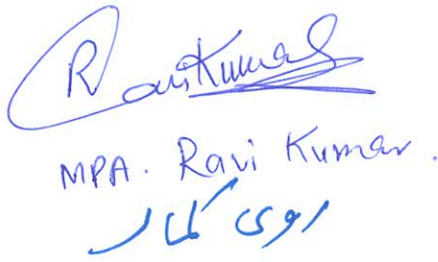 Ravi Kumar
MPA. Ravi Kumar.
روی کمار